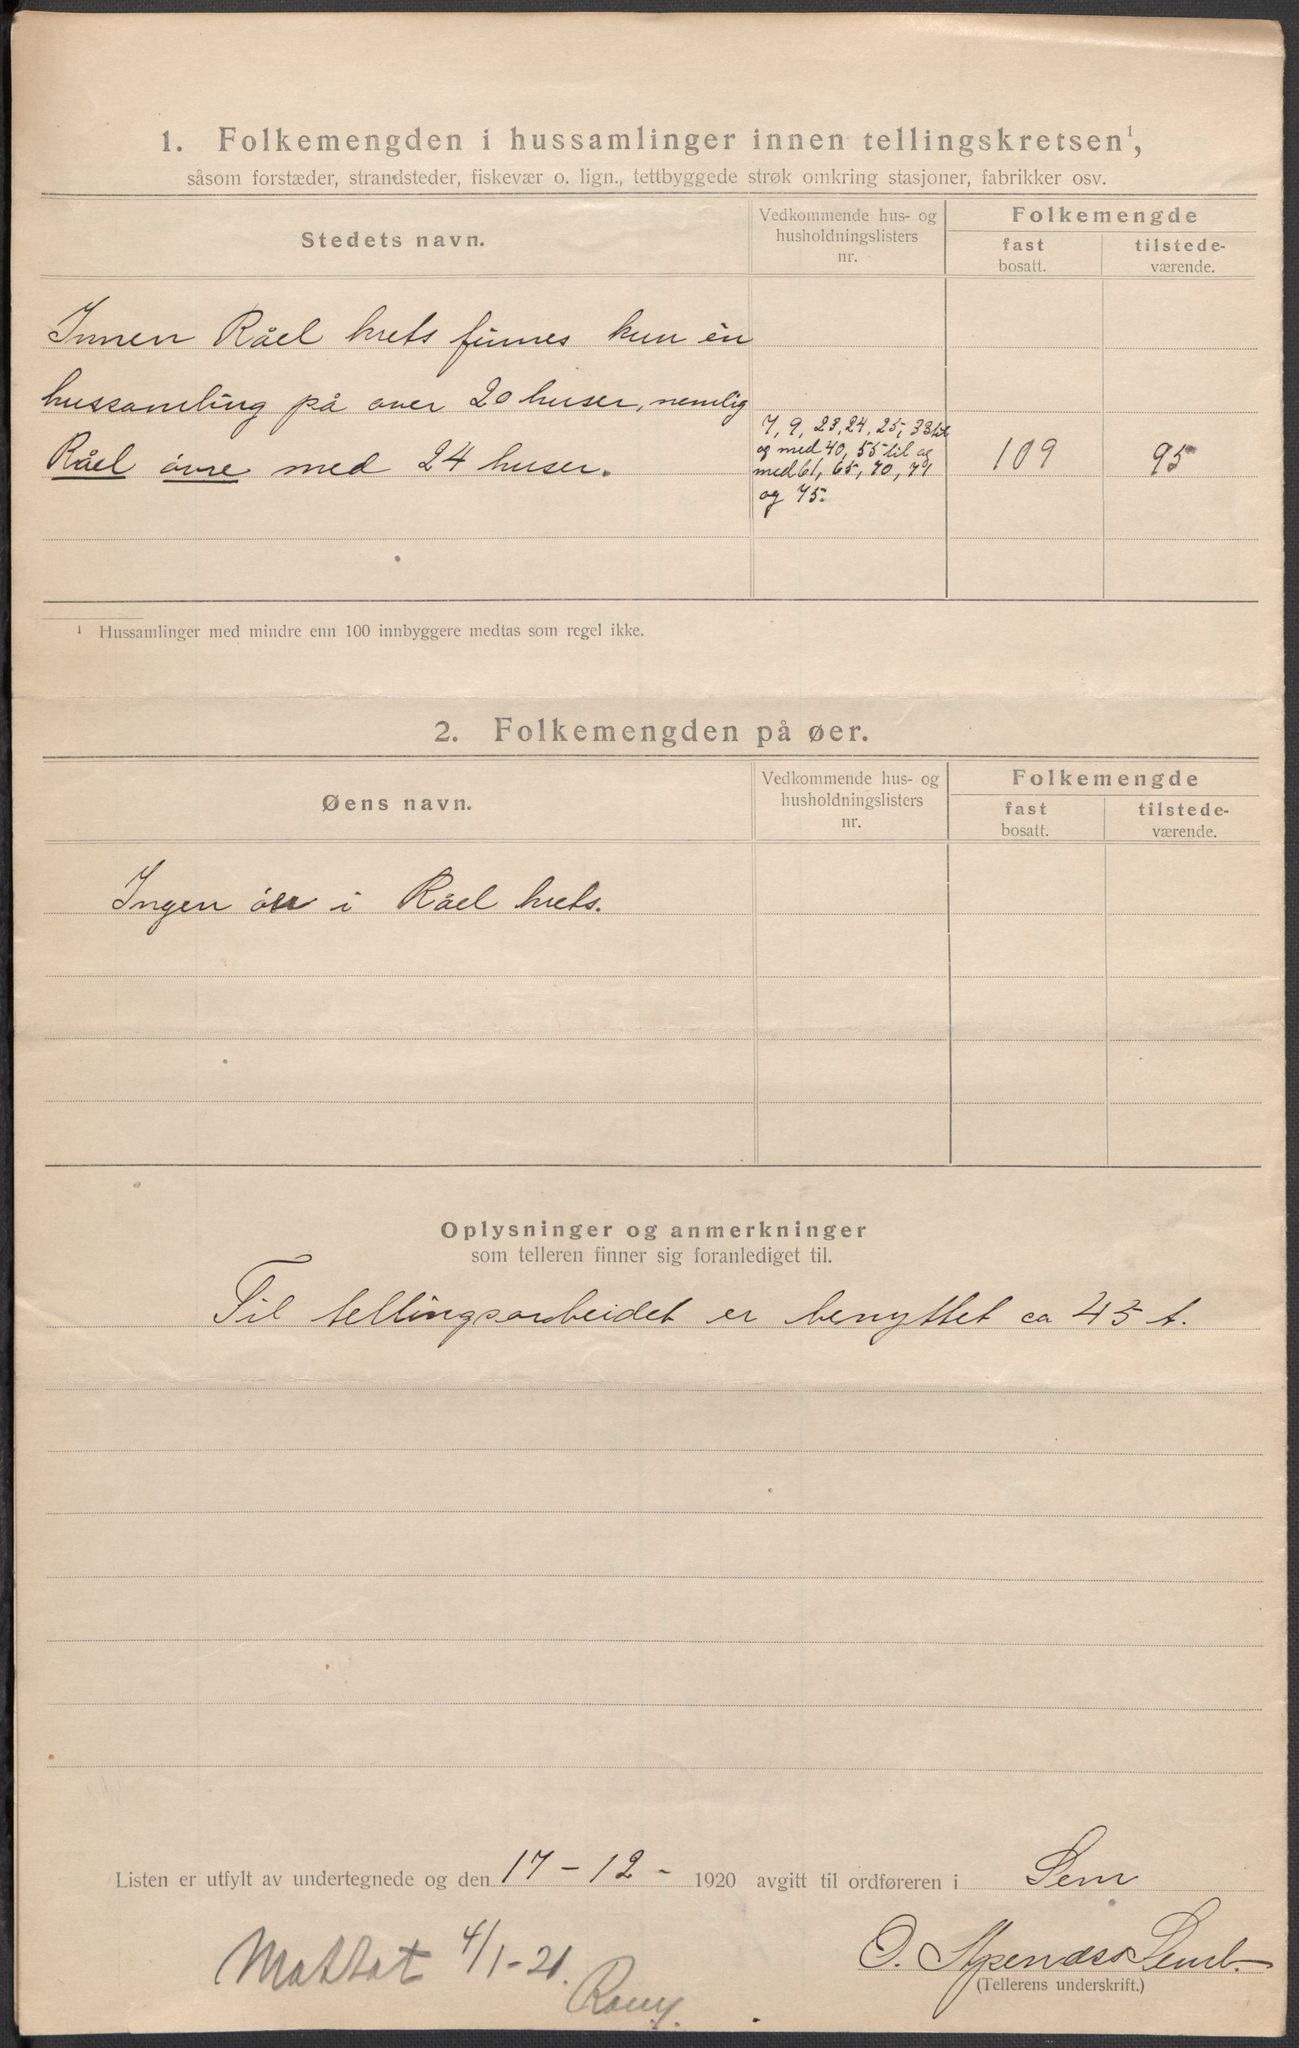 1. Folkemengden i hussamlinger innen tellingskretsen¹,
såsom forstæder, strandsteder, fiskevær o. lign., tettbyggede strøk omkring stasjoner, fabrikker osv.
Stedets navn.
Vedkommende hus- og
husholdningslisters
nr.
Folkemengde
fast
bosatt.
tilstede-
værende.
Innen Råel krets finnes kun én
hussamling på over 20 huser, nemlig
Råel övre med 24 huser.
7, 9, 23, 24, 25, 33 til
og med 40, 55 til og
med 61, 65, 70, 71
og 75.
109
95
¹ Hussamlinger med mindre enn 100 innbyggere medtas som regel ikke.
2. Folkemengden på øer.
Øens navn.
Vedkommende hus- og
husholdningslisters
nr.
Folkemengde
fast
bosatt.
tilstede-
værende.
Ingen i Råel krets.
Oplysninger og anmerkninger
som telleren finner sig foranlediget til.
Til tellingsarbeidet er benyttet ca 45 t.
Listen er utfylt av undertegnede og den 17-12- 1920 avgitt til ordføreren i Sem
O.
(Tellerens underskrift.)
Mottat 4/1-21.